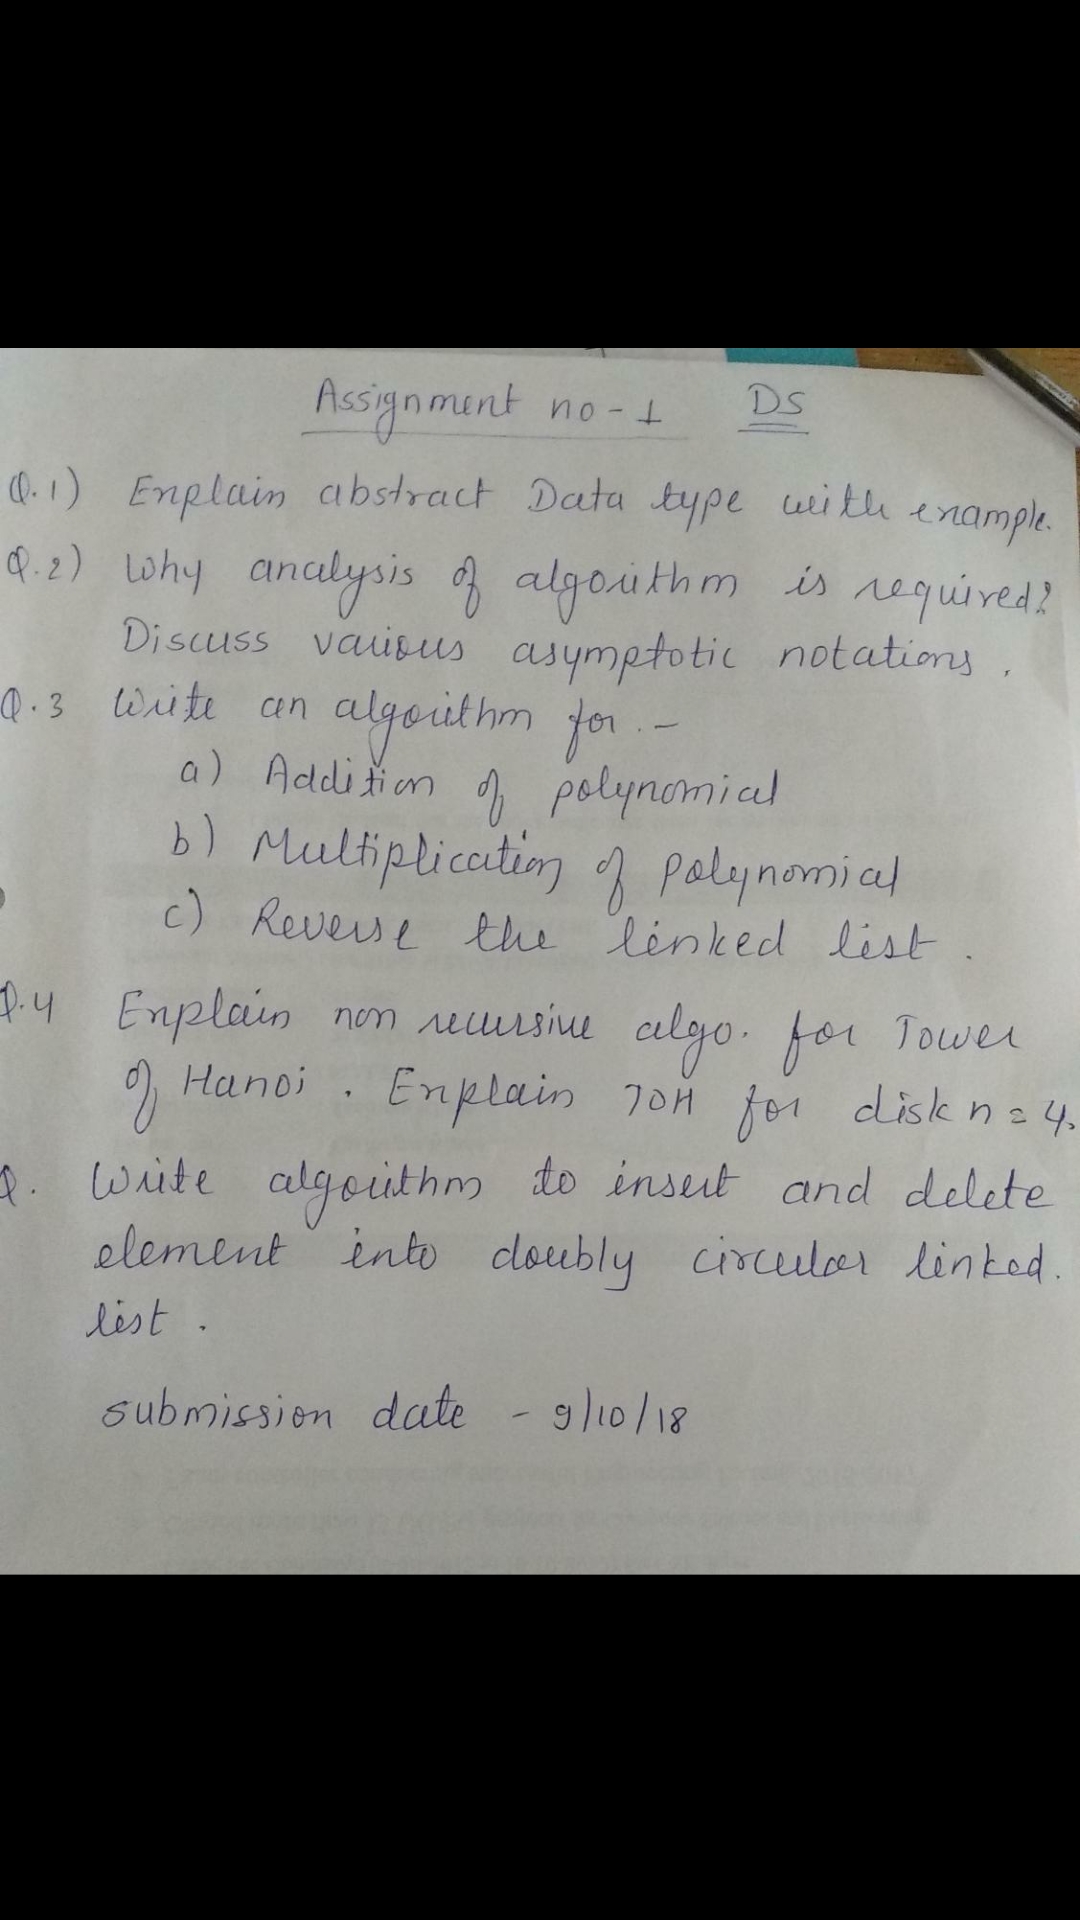 Assignment no-1 DS
Q.1) Explain abstract Data type with example.
Q.2) Why analysis of algorithm is required?
Discuss various asymptotic notations.
Q.3 Write an algorithm for.-
a) Addition of polynomial
b) Multiplication of polynomial
c) Reverse the linked list.
Q.4 Explain non recursive algo. for Tower
of Hanoi. Explain TOH for disk n=4.
Q. Write algorithm to insert and delete
element into doubly circular linked.
list.
submission date - 9/10/18